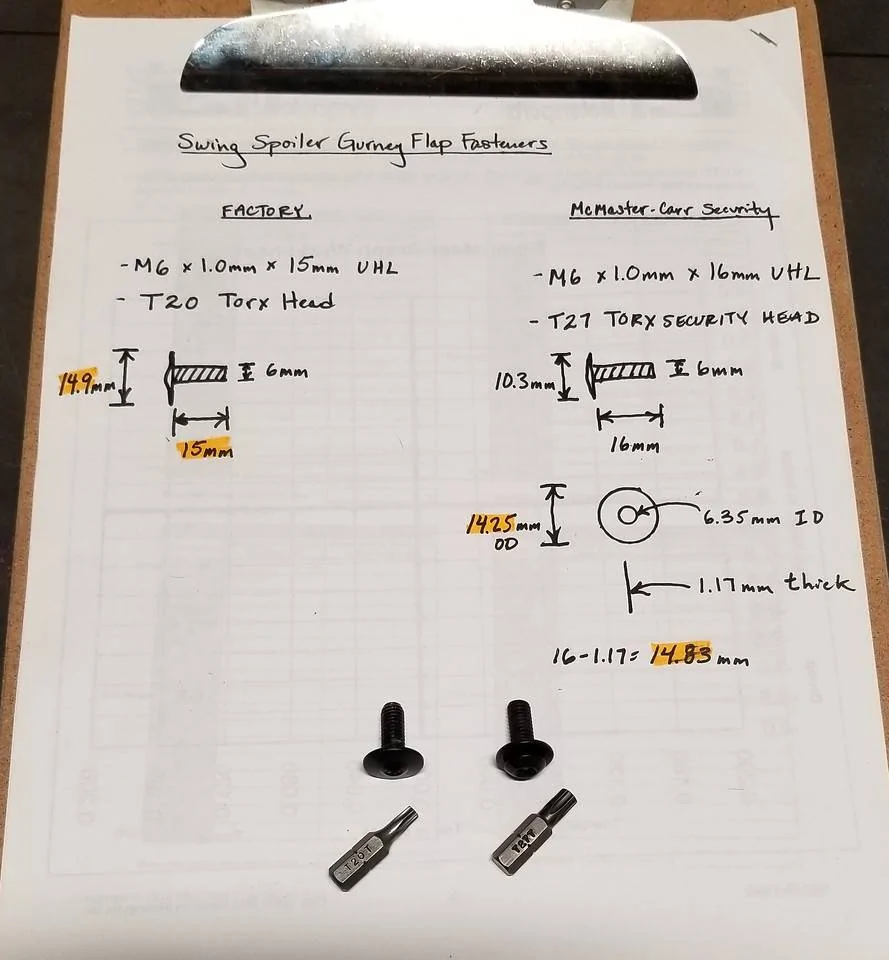 Swing Spoiler Gurney Flap Fasteners
FACTORY
- M6 x 1.0mm x 15mm UHL
- T20 Torx Head
14.9mm
6mm
15mm
McMaster-Carr Security
- M6 x 1.0mm x 16mm UHL
- T27 TORX SECURITY HEAD
10.3mm
6mm
16mm
14.25mm
OD
6.35mm ID
1.17mm thick
16-1.17= 14.83mm
T20T